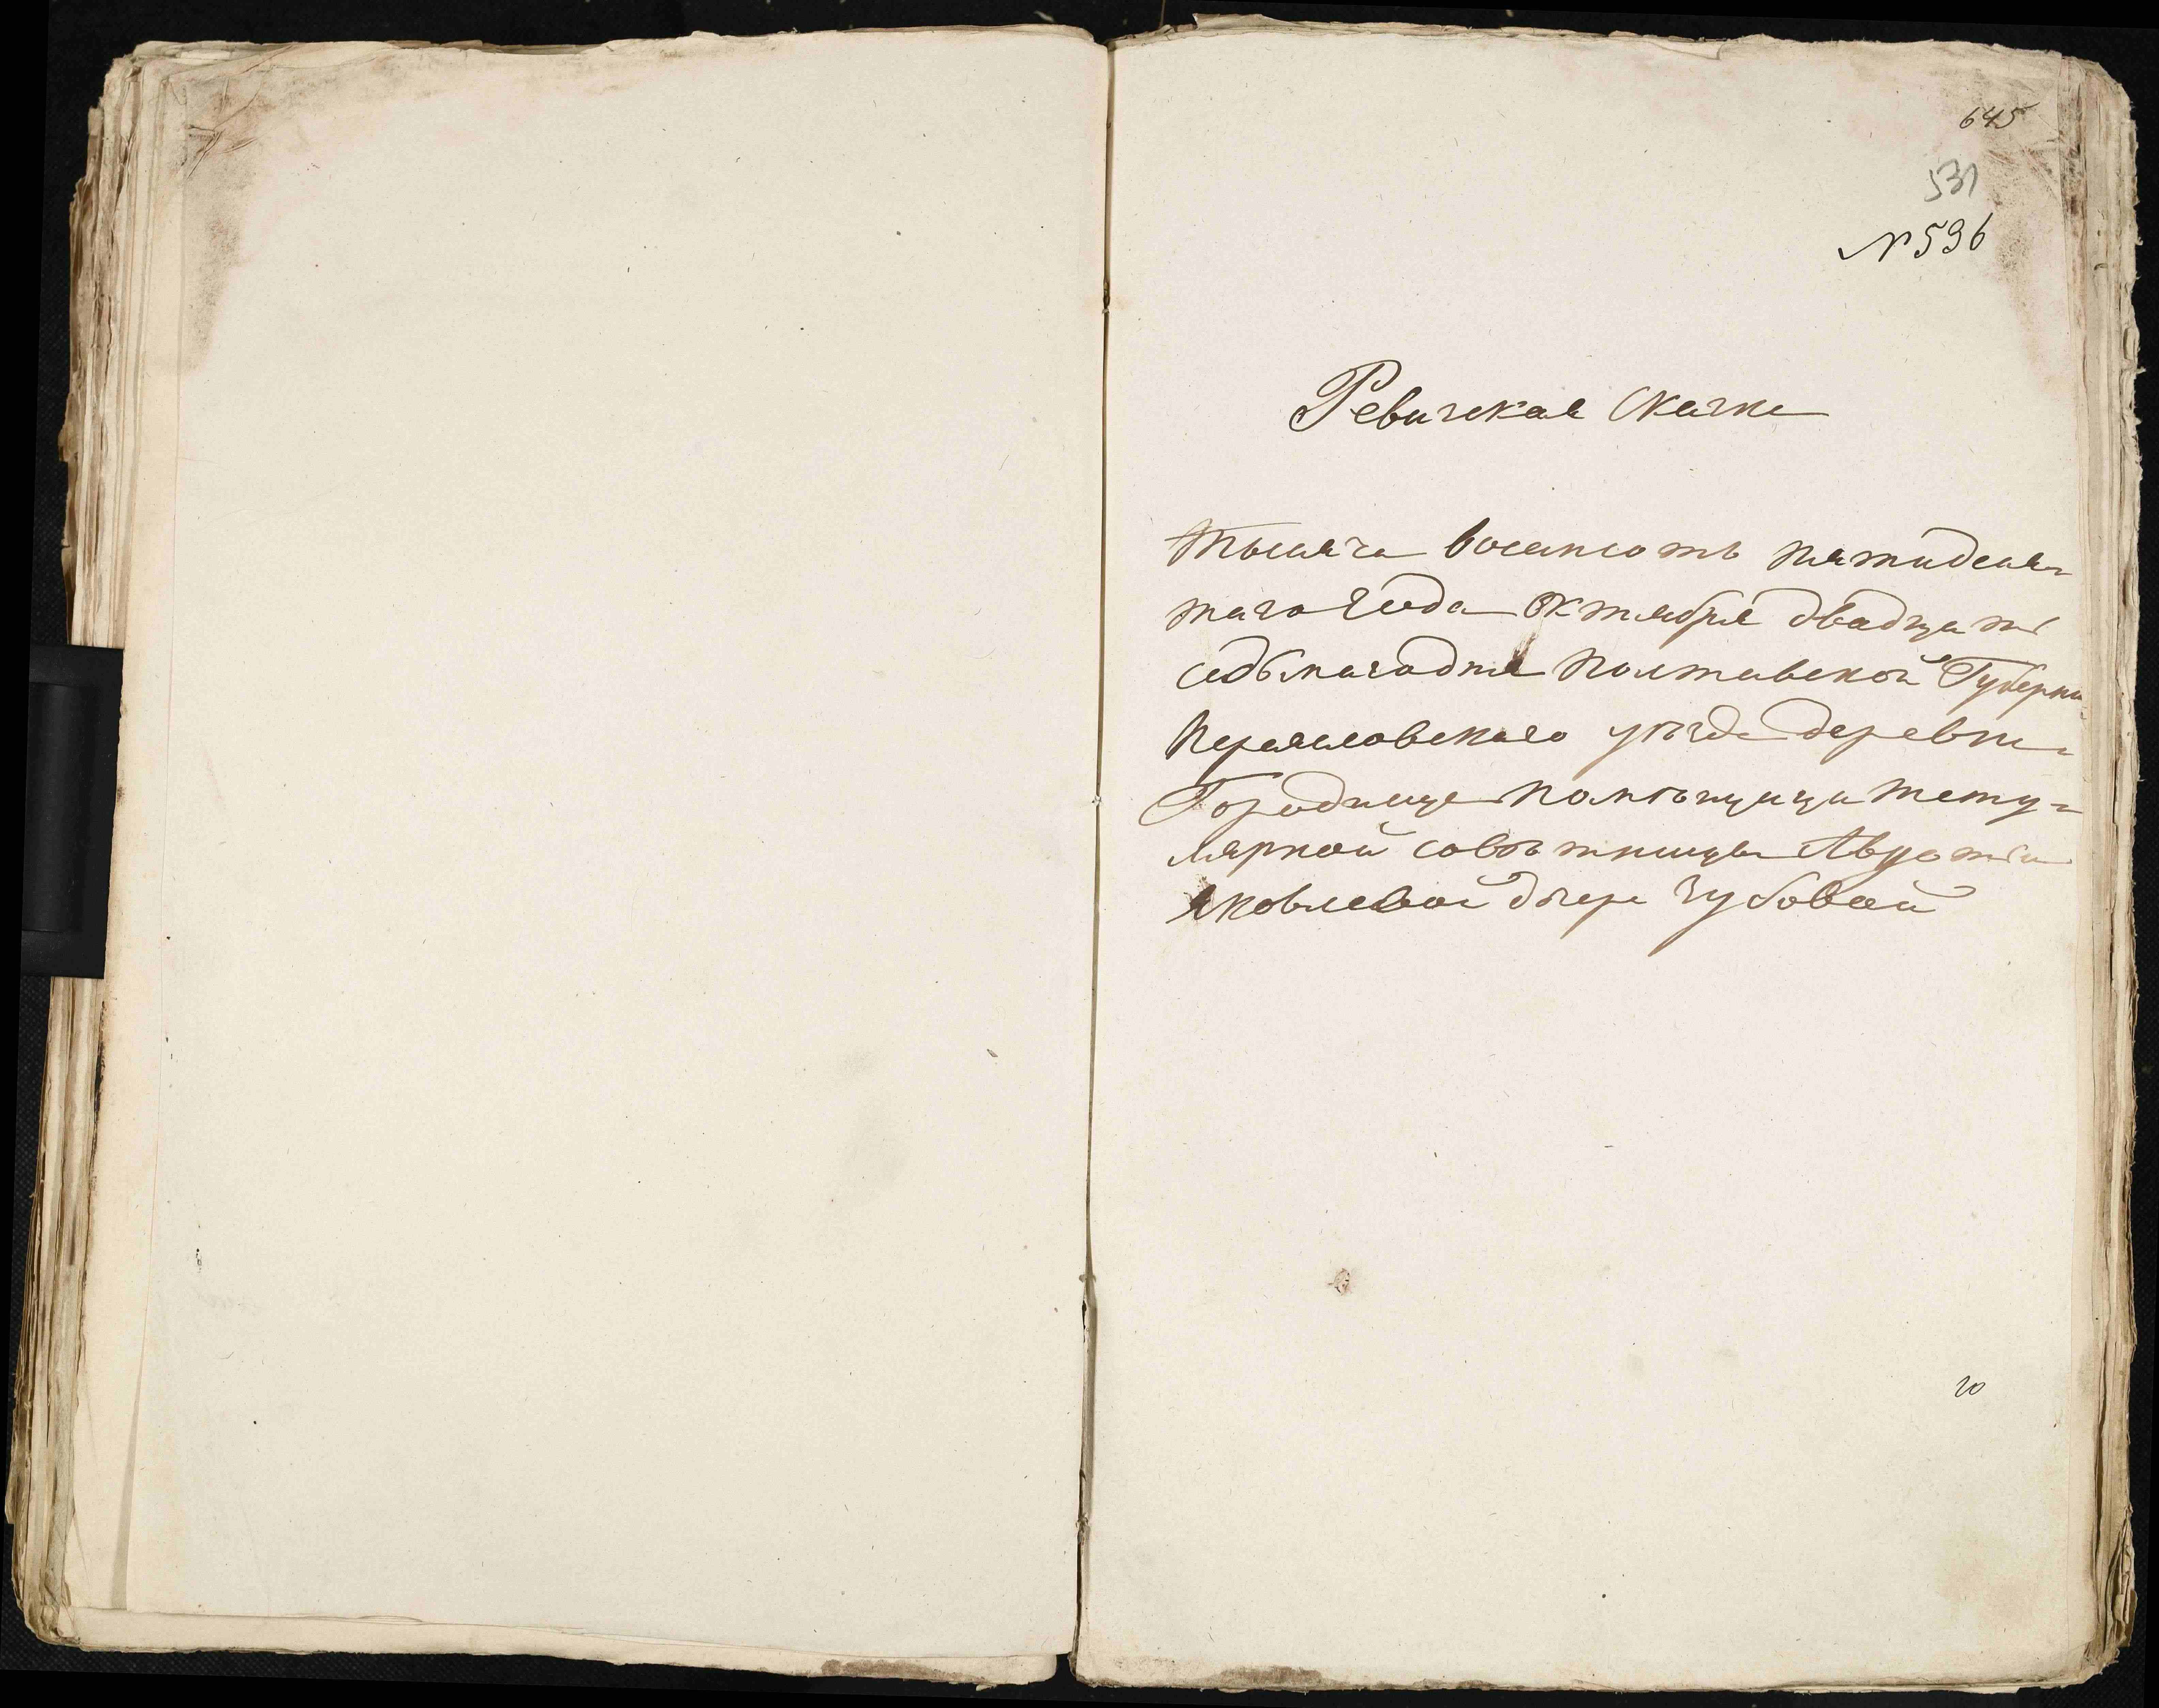 645
531
№ 596
Ревизская Сказка
Тысяча восемьсотъ пятидеся=
таго года Октября двадцать
седьмагодня Полтавской Губерни
Переясловскаго уѣзда деревни
Городище помѣщицы Тету=
лярной совѣтницы
Яковлевой дочери Зубовой
10